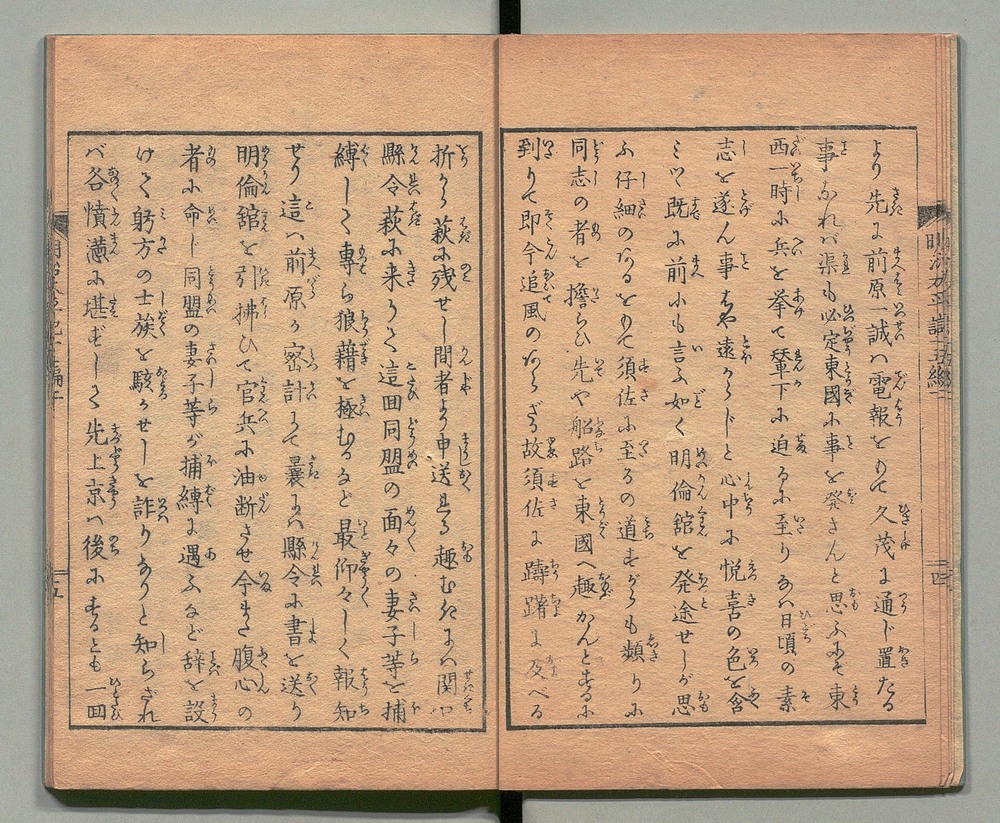 より先に前原一誠ハ電報をもて久茂に通じ置たる
事なれバ渠も必定東國に事を発さんと思ふにぞ東
西一時に兵を挙て輦下に迫るに至りなバ日頃の素
志を遂ん事もや遠からじと心中に悦喜の色を含
ミつゝ既に前にも言ふ如く明倫舘を発途せしが思
ふ仔細のあるをもて須佐に至るの道すがらも頻りに
同志の者を擔らひ先や船路を東國へ趣かんとするに
到りて即今追風のあらざる故須佐に躊躇に及べる
折から萩に残せし間者より申送れる趣むきにハ関口
縣令萩に来りて這回同盟の面々の妻子等を捕
縛して専ら狼藉を極むるなど最仰々しく報知
せり這ハ前原が密計にて曩にハ縣令に書を送り
明倫舘を引拂ひて官兵に油断させ今また腹心の
者に命じ同盟の妻子等が捕縛に遇ふなど辞を設
けて躬方の士族を駭かせしを詐りなりと知らざれ
バ各憤懣に堪ずして先上京ハ後にするとも一回